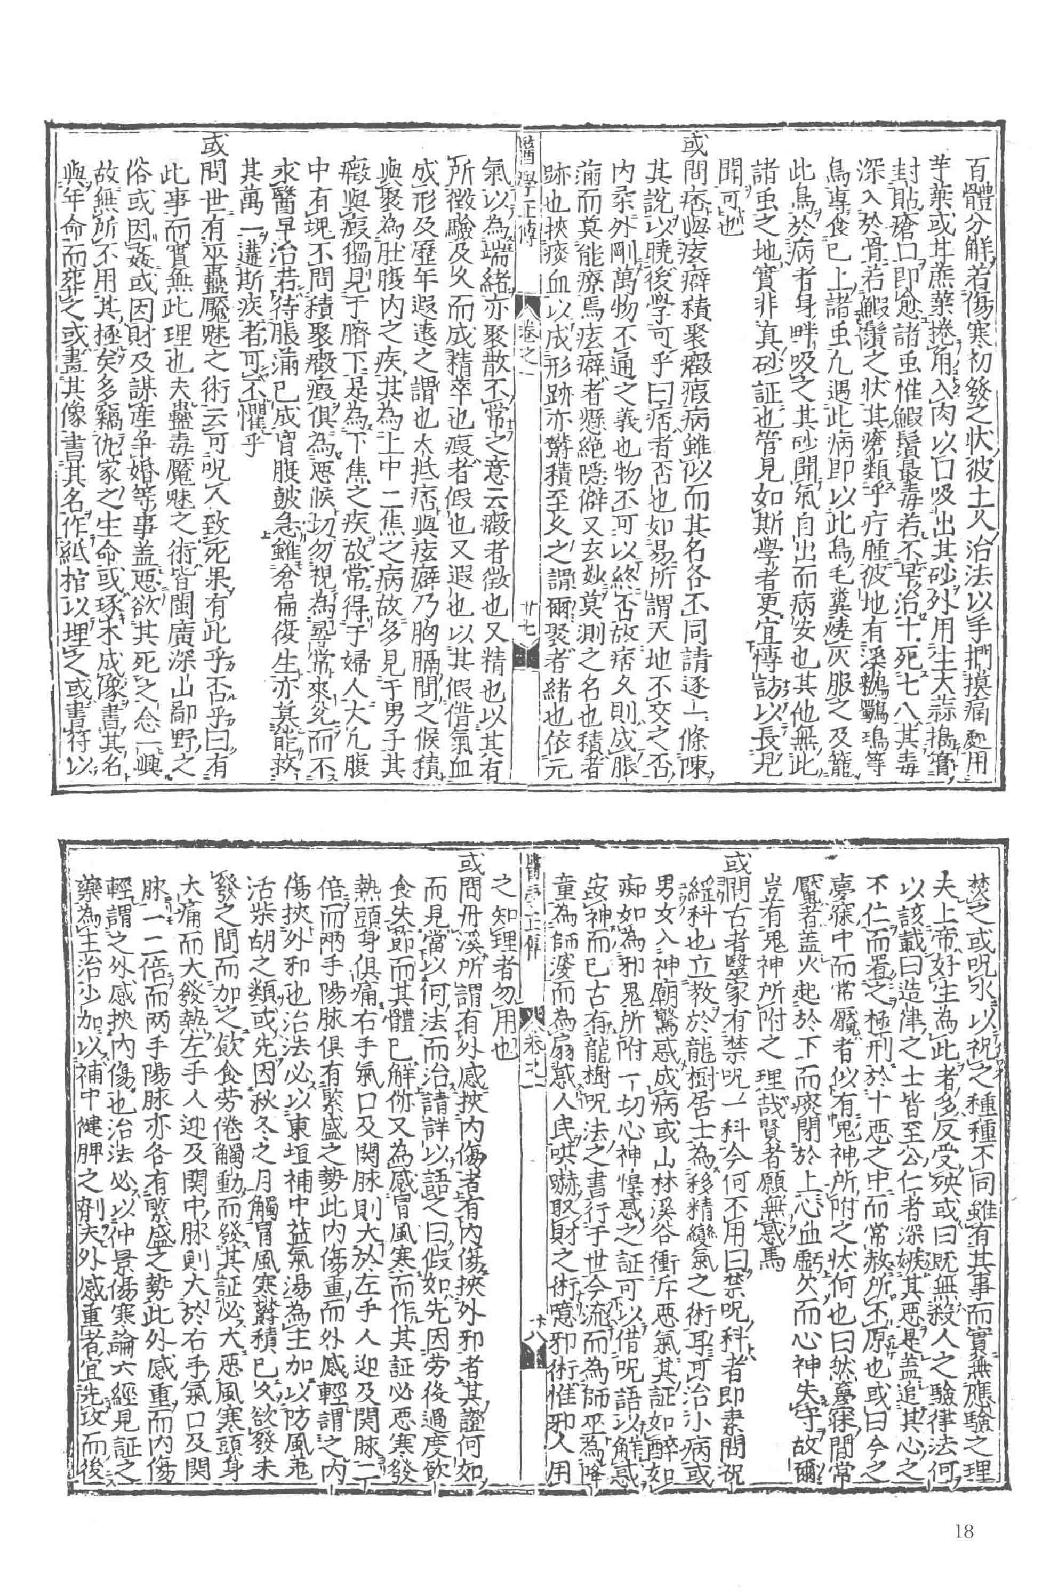 百體分解若傷寒初發之状彼土人治法以手捫摸痛處用
芋葉或甘蔗葉捲角入肉以口吸出其砂外用生大蒜搗膏
封貼瘡口即愈諸虫惟鰕鬚最毒若不早治十死七八其毒
深入於骨若鰕鬚之状其瘡類乎疔腫彼地有溪鵝鸀鳿等
鳥專食已上諸虫凡遇此病即以此鳥毛糞燒灰服之及籠
此鳥於病者身畔吸之其砂聞氣自出而病安也其他無此
諸虫之地實非真砂証也管見如斯學者更宜博訪以長見
聞可也
或問痞與痃癖積聚癥瘕病雖似而其名各不同請逐一條陳
其說以曉後學可乎曰痞者否也如易所謂天地不交之否
内柔外剛萬物不通之義也物不可以終否故痞久則成脹
滿而莫能療焉痃癖者懸絶隱僻又玄妙莫測之名也積者
跡也挾痰血以成形跡亦欝積至久之謂爾聚者緒也依元
醫學正傳 卷之一 廿七
氣以為端緒亦聚散不常之意云癥者徵也又精也以其有
所徵驗及久而成精萃也瘕者假也又遐也以其假借氣血
成形及歷年遐遠之謂也大抵痞與痃癖乃胸膈間之候積
與聚為肚腹内之疾其為上中二焦之病故多見于男子其
癥與瘕獨見于臍下是為下焦之疾故常得于婦人大凡腹
中有塊不問積聚癥瘕俱為惡候切勿視為尋常來兊而不
求醫早治若待脹滿已成胷腹皷急雖倉扁復生亦莫能救
其萬一遘斯疾者可不懼乎
或問世有巫蠱魘魅之術云可呪人致死果有此乎否乎曰有
此事而實無此理也夫蠱毒魘魅之術皆閩廣深山鄙野之
俗或因姦或因財及謀產爭婚等事盖惡欲其死之念一興
故無所不用其極矣多竊仇家之生命或琢木成像書其名
與年命而葬之或畵其像書其名作紙棺以埋之或書符以
焚之或呪水以祝之種種不同雖有其事而實無應驗之理
夫上帝好生為此者多反受殃或曰既無殺人之驗律法何
以該載曰造律之士皆至公仁者深嫉其惡是盖追其心之
不仁而置之極刑於十惡之中而常赦所不原也或曰今之
夢寐中而常魘者似有鬼神所附之状何也曰然夢寐間常
魘者盖火起於下而痰閉於上心血虧欠而心神失守故爾
豈有鬼神所附之理哉賢者願無惑焉
或問古者毉家有禁呪一科今何不用曰禁呪科者即素問祝
繇科也立教於龍樹居士為移精變氣之術耳可治小病或
男女入神廟驚惑成病或山林溪谷衝斥惡氣其証如醉如
痴如為邪鬼所附一切心神惶惑之証可以借呪語以解惑
安神而已古有龍樹呪法之書行于世今流而為師巫為降
童為師婆而為扇惑人民哄嚇取財之術噫邪術惟邪人用
醫學正傳 卷之一 廿八
之知理者勿用也
或問丹溪所謂有外感挾内傷者有内傷挾外邪者其證何如
而見當以何法而治請詳以語之曰假如先因勞後過度飲
食失節而其體已解㑊又為感冒風寒而作其証必惡寒發
熱頭身俱痛右手氣口及関脉則大於左手人迎及関脉一二
倍而兩手陽脉俱有緊盛之勢此内傷重而外感輕謂之内
傷挾外邪也治法必以東垣補中益氣湯為主加以防風羌
活柴胡之類或先因秋冬之月觸冒風寒欝積已久欲發未
發之間而加之飲食勞倦觸動而發其証必大惡風寒頭身
大痛而大發熱左手人迎及関中脉則大於右手氣口及関
脉一二倍而两手陽脉亦各有緊盛之勢此外感重而内傷
輕謂之外感挾内傷也治法必以仲景傷寒論六經見証之
藥為主治少加以補中健脾之劑夫外感重者宜先攻而後
18